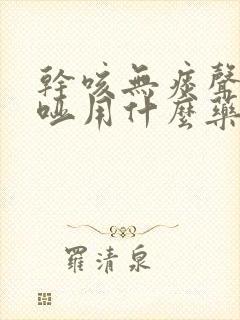 幹咳無痰聲
啞用什麼藥
羅清泉